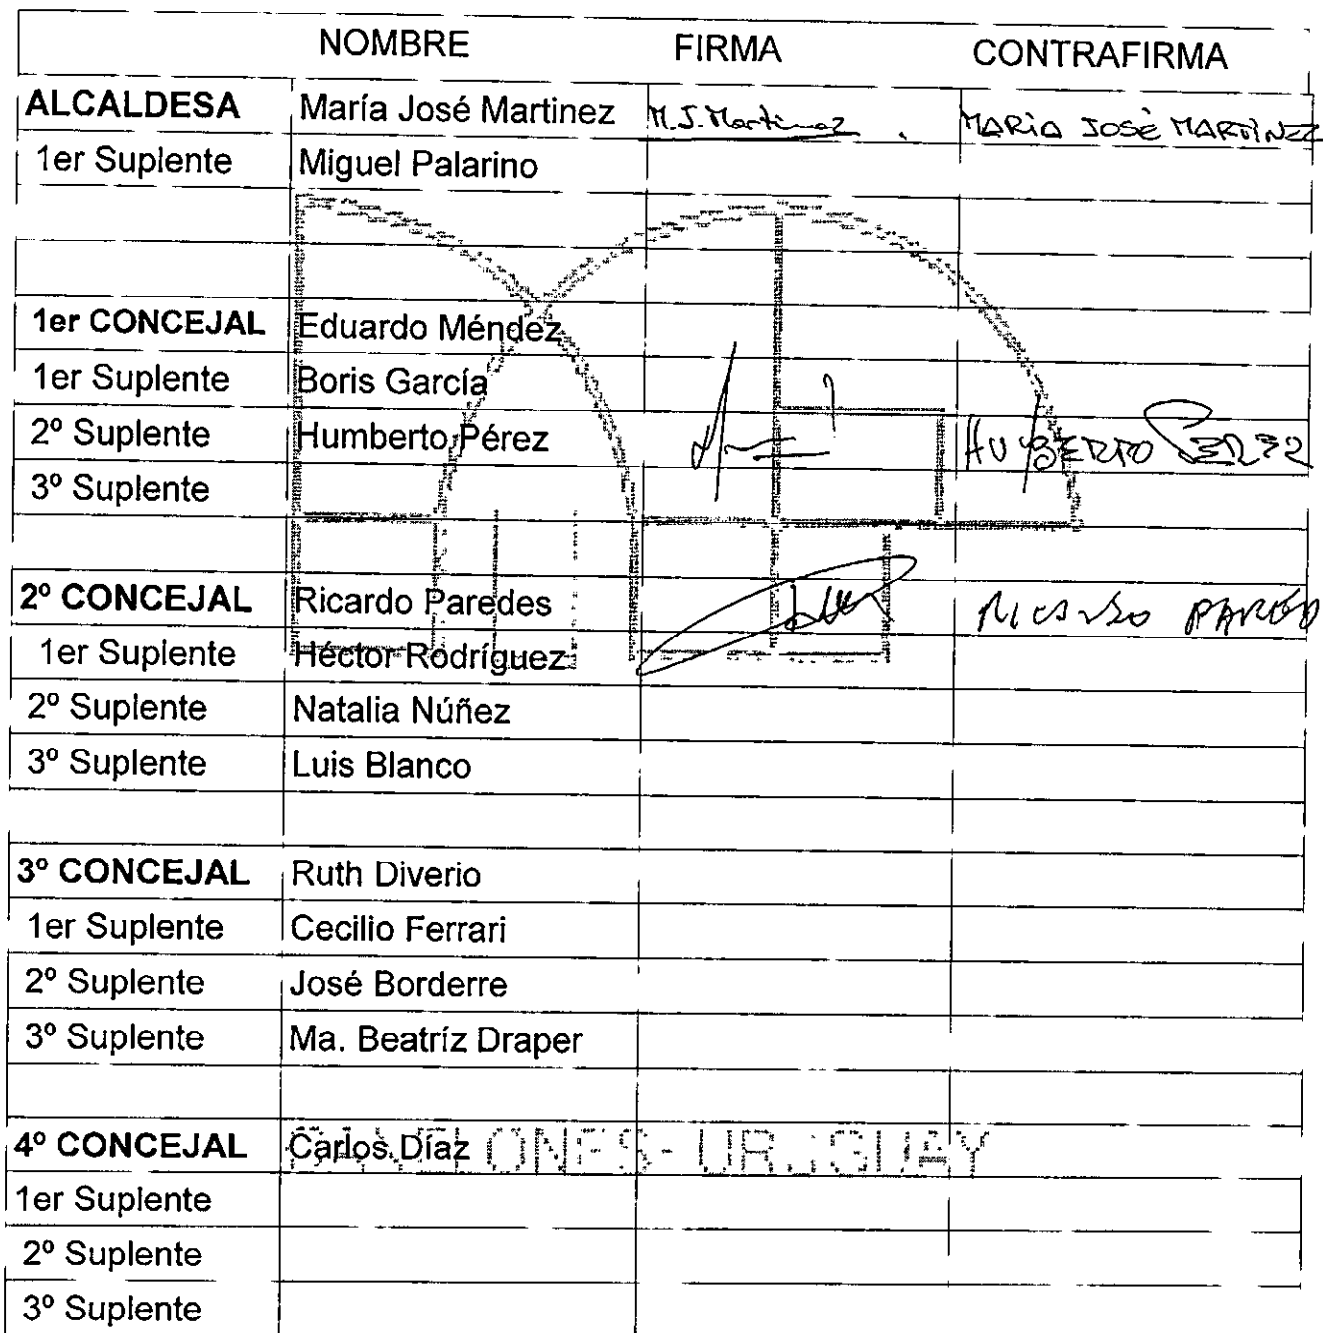 NOMBRE FIRMA CONTRAFIRMA
ALCALDESA María José Martinez M.J. Martinez MARIA JOSÉ MARTINEZ
1er Suplente Miguel Palarino
1er CONCEJAL Eduardo Méndez
1er Suplente Boris García
2º Suplente Humberto Pérez HUMBERTO PEREZ
3º Suplente
2º CONCEJAL Ricardo Paredes RICARDO PAREDES
1er Suplente Héctor Rodríguez
2º Suplente Natalia Núñez
3º Suplente Luis Blanco
3º CONCEJAL Ruth Diverio
1er Suplente Cecilio Ferrari
2º Suplente José Borderre
3º Suplente Ma. Beatríz Draper
4º CONCEJAL Carlos Díaz
CANELONES - URUGUAY
1er Suplente
2º Suplente
3º Suplente